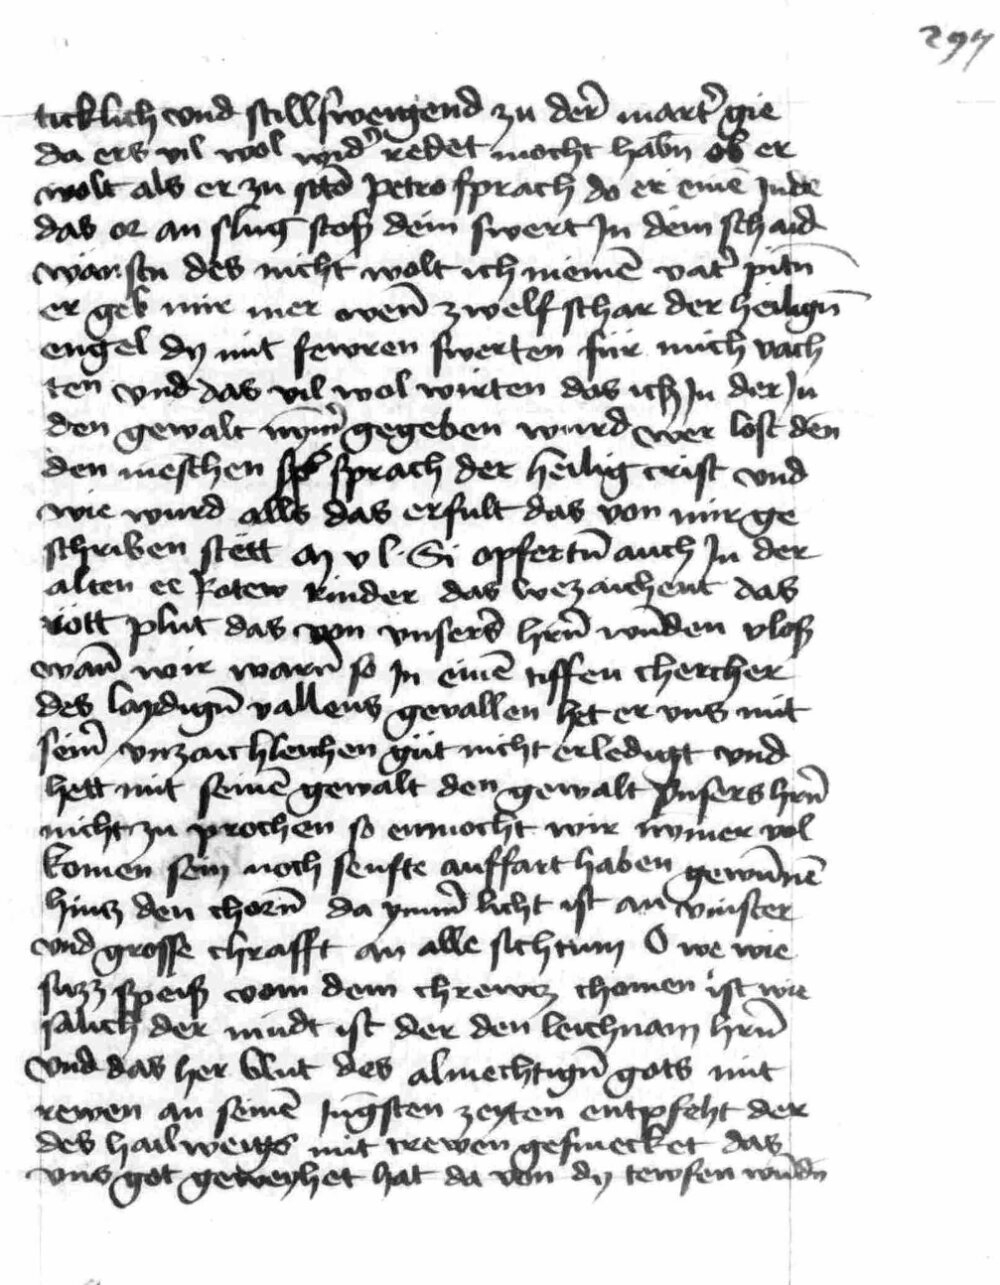 297
ticklich vnd stillsweigend zu der marter gie
da ers vil wol wider redet mocht habn ob er
wolt als er zu sand Petro sprach do er eine Jude
das or an slug stoß dein swert In dein schaid
wan des nicht wolt ich meinē vater pitn
er geb mir mer wen̄ zwelf schar der heilign̄
engel dy mit fewren swerten für mich vach
ten vnd das vil wol wurten das ich In der Ju
den gewalt nymer gegeben wurd wer lost den
den meschen sprach der heilig crist vnd
wie wurd alls das erfult das von mir ge
schriben stett Si opfertn̄ auch In der
alten ee Rotew rinder das bezaichent das
rott plut das von vnsers hrn̄ wūden vloß
wan̄ wir warn̄ so In einē tiffen chercher
des laydign̄ vallens gevallen het er vns mit
seiner vnzaichleichen güt nicht erledigt vnd
hett mit seinē gewalt den gewalt vnsers hrn̄
nicht zu prochen so enmocht wir nymer vol
komen sein noch senfte auffart haben gewūnē
hinz den chorn̄ da ymmer licht ist an vinster
vnd grosse chrafft an alle sichtum O we wie
suzz speiß vom dem chrewcz chomen ist wie
salich der mūdt ist der den leichnam hrn̄
vnd das her blut des almechtign̄ gots mit
rewen an seinē Jūgsten zeyten entpfeht der
des hailweigs mit trewen gesmecket das
vns got geweyhet hat da von dy tewfen wūdn